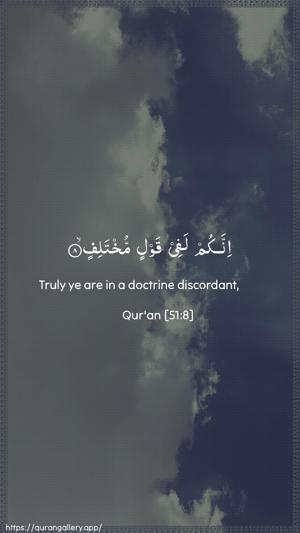 اِنَّكُمْ لَفِىْ قَوْلٍ مُّخْتَلِفٍۙ‏ ٨
Truly ye are in a doctrine discordant,
Qur'an [51:8]
https://qurangallery.app/